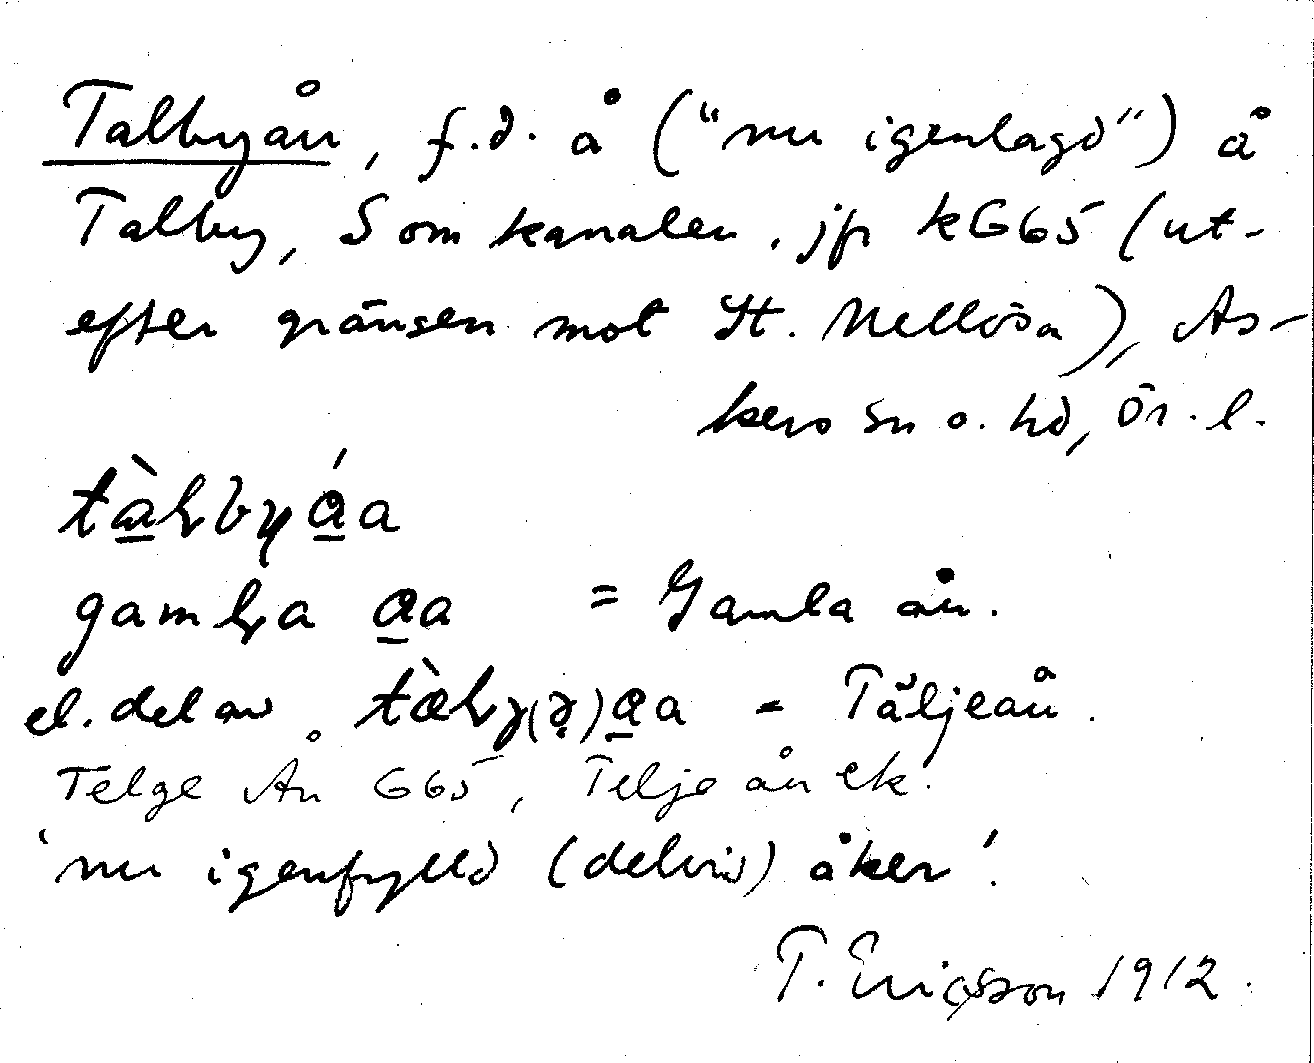 Talbyån, f.d. å ("nu igenlagd") å
Talby, S om kanalen, jfr kG65 (ut-
efter gränsen mot St. Mellösa), As-
kers sn o. hd, Ör. l.
gamḷa a̲a = Gamla ån.
el. del av = Täljeån.
Telge Ån G65, Telje ån ek.
'nu igenfylld (delvis) åker'.
T. Ericsson 1912.